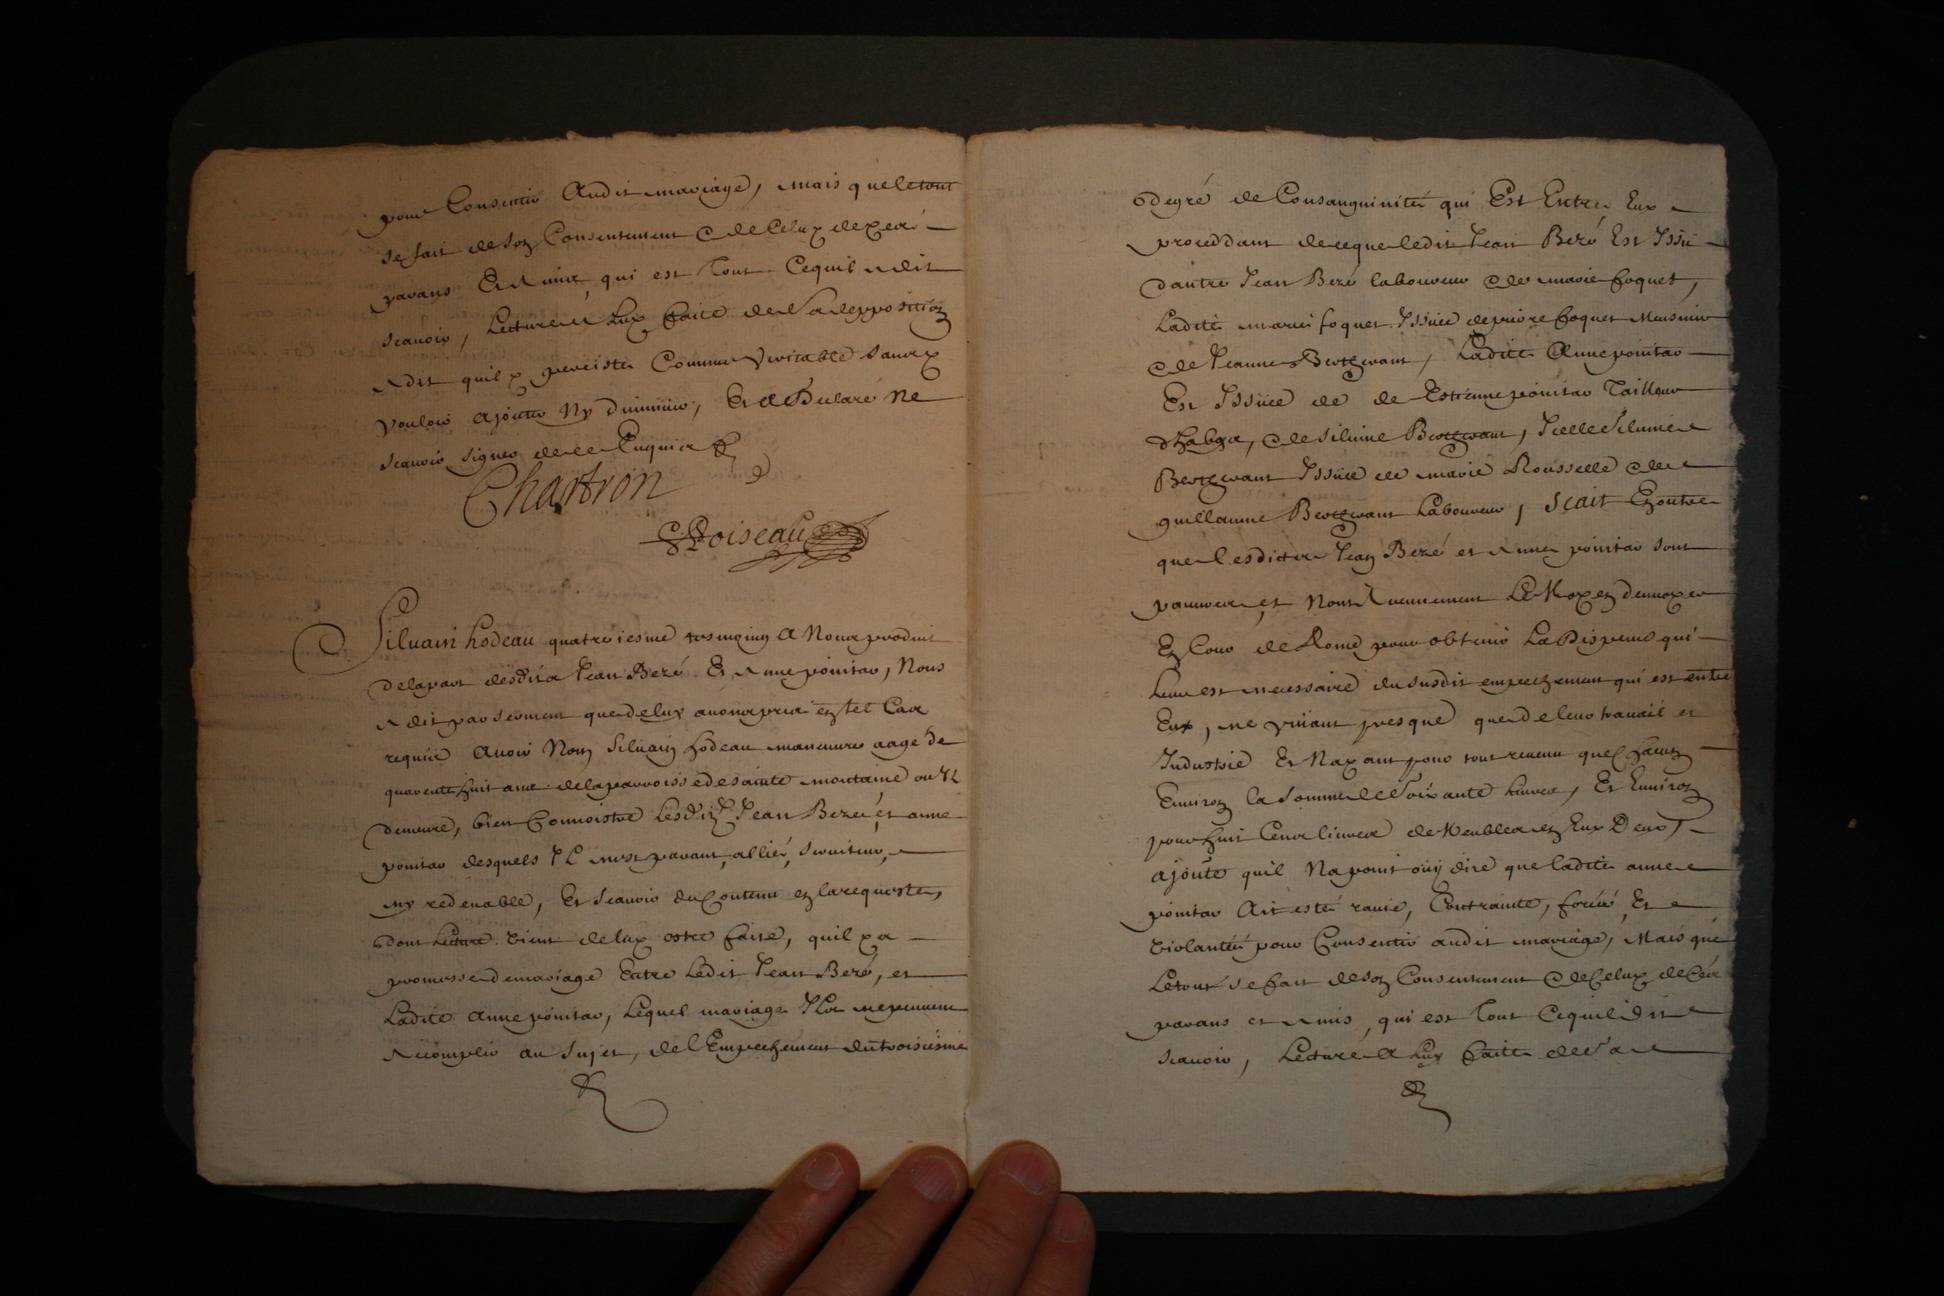 pour Consentir Audit mariage, mais que le tout
se fait de son Consentement & de Celuy de ses
parans Et amis qui est tout Cequil a dit
scauoir, Lecture a Luy faite de sa depposition
a dit quil y perciste Comme veritable sans y
vouloir ajouter Ny diminuer, Et a declaré Ne
scauoir signer de ce Enquis
Chartron
Poiseau
Siluain hodeau quatreiesme tesmoing A Nous produit
de la part desdits Jean Bezé Et Anne pointar, Nous
A dit par serment que de luy auons pris en tel Cas
requis Auoir Nom Siluain hodeau manœuure aagé de
quarente huit ans de la parroisse de sainte montaine ou Il
demeure, bien Connoistre Lesdits Jean Bezé et anne
pointar desquels Il nest parant, allié, seruiteur,
ny redeuable, Et scauoir du Contenu en la requeste,
dont Lecture vient de luy estre faite, quil y a
promesse de mariage Entre Ledit Jean Bezé, et
Ladite Anne pointar, Lequel mariage Ils ne peuuent
Acomplir au sujet, de l'Empeschement du troisiesme
degré de Consanguinité qui Est Entre Eux
proceddant de ce que ledit Jean Bezé Est Issu
d'autre Jean Bezé laboureur & de marie foquet,
Ladite marie foquet Issüe de piere foquet Meusnier
& de Jeanne Bertgrant, Ladite Anne pointar
Est Issüe de de Estienne pointar Tailleur
d'habys, & de siluine Bertgrant, Icelle Siluine
Bertgrant Issüe de marie Rousselle & de
guillaume Bertgrant Laboureur, scait En outre
que lesdicts Jean Bezé et Anne pointar sont
pauures, et Nont aucunement Le Moyen d'enuoyer
En Cour de Rome pour obtenir La Dispense qui
Leur est necessaire du susdit empeschement qui est entre
Eux, ne viuant presque que de leur trauail et
Industrie Et Nayant pour tout reuenu que Chacun
Enuiron la somme de Soixante liures, Et Enuiron
pour huit Cens liures de Meubles en Eux Deux,
ajoute quil Na point oüy dire que ladite anne
pointar Ait esté rauie, Contrainte, forcée, Et
violantée pour Consentir audit mariage, Mais que
Le tout se fait de son Consentement & de Celuy de ses
parans et Amis, qui est Tout Cequil dit
scauoir, Lecture a Luy faite de sa